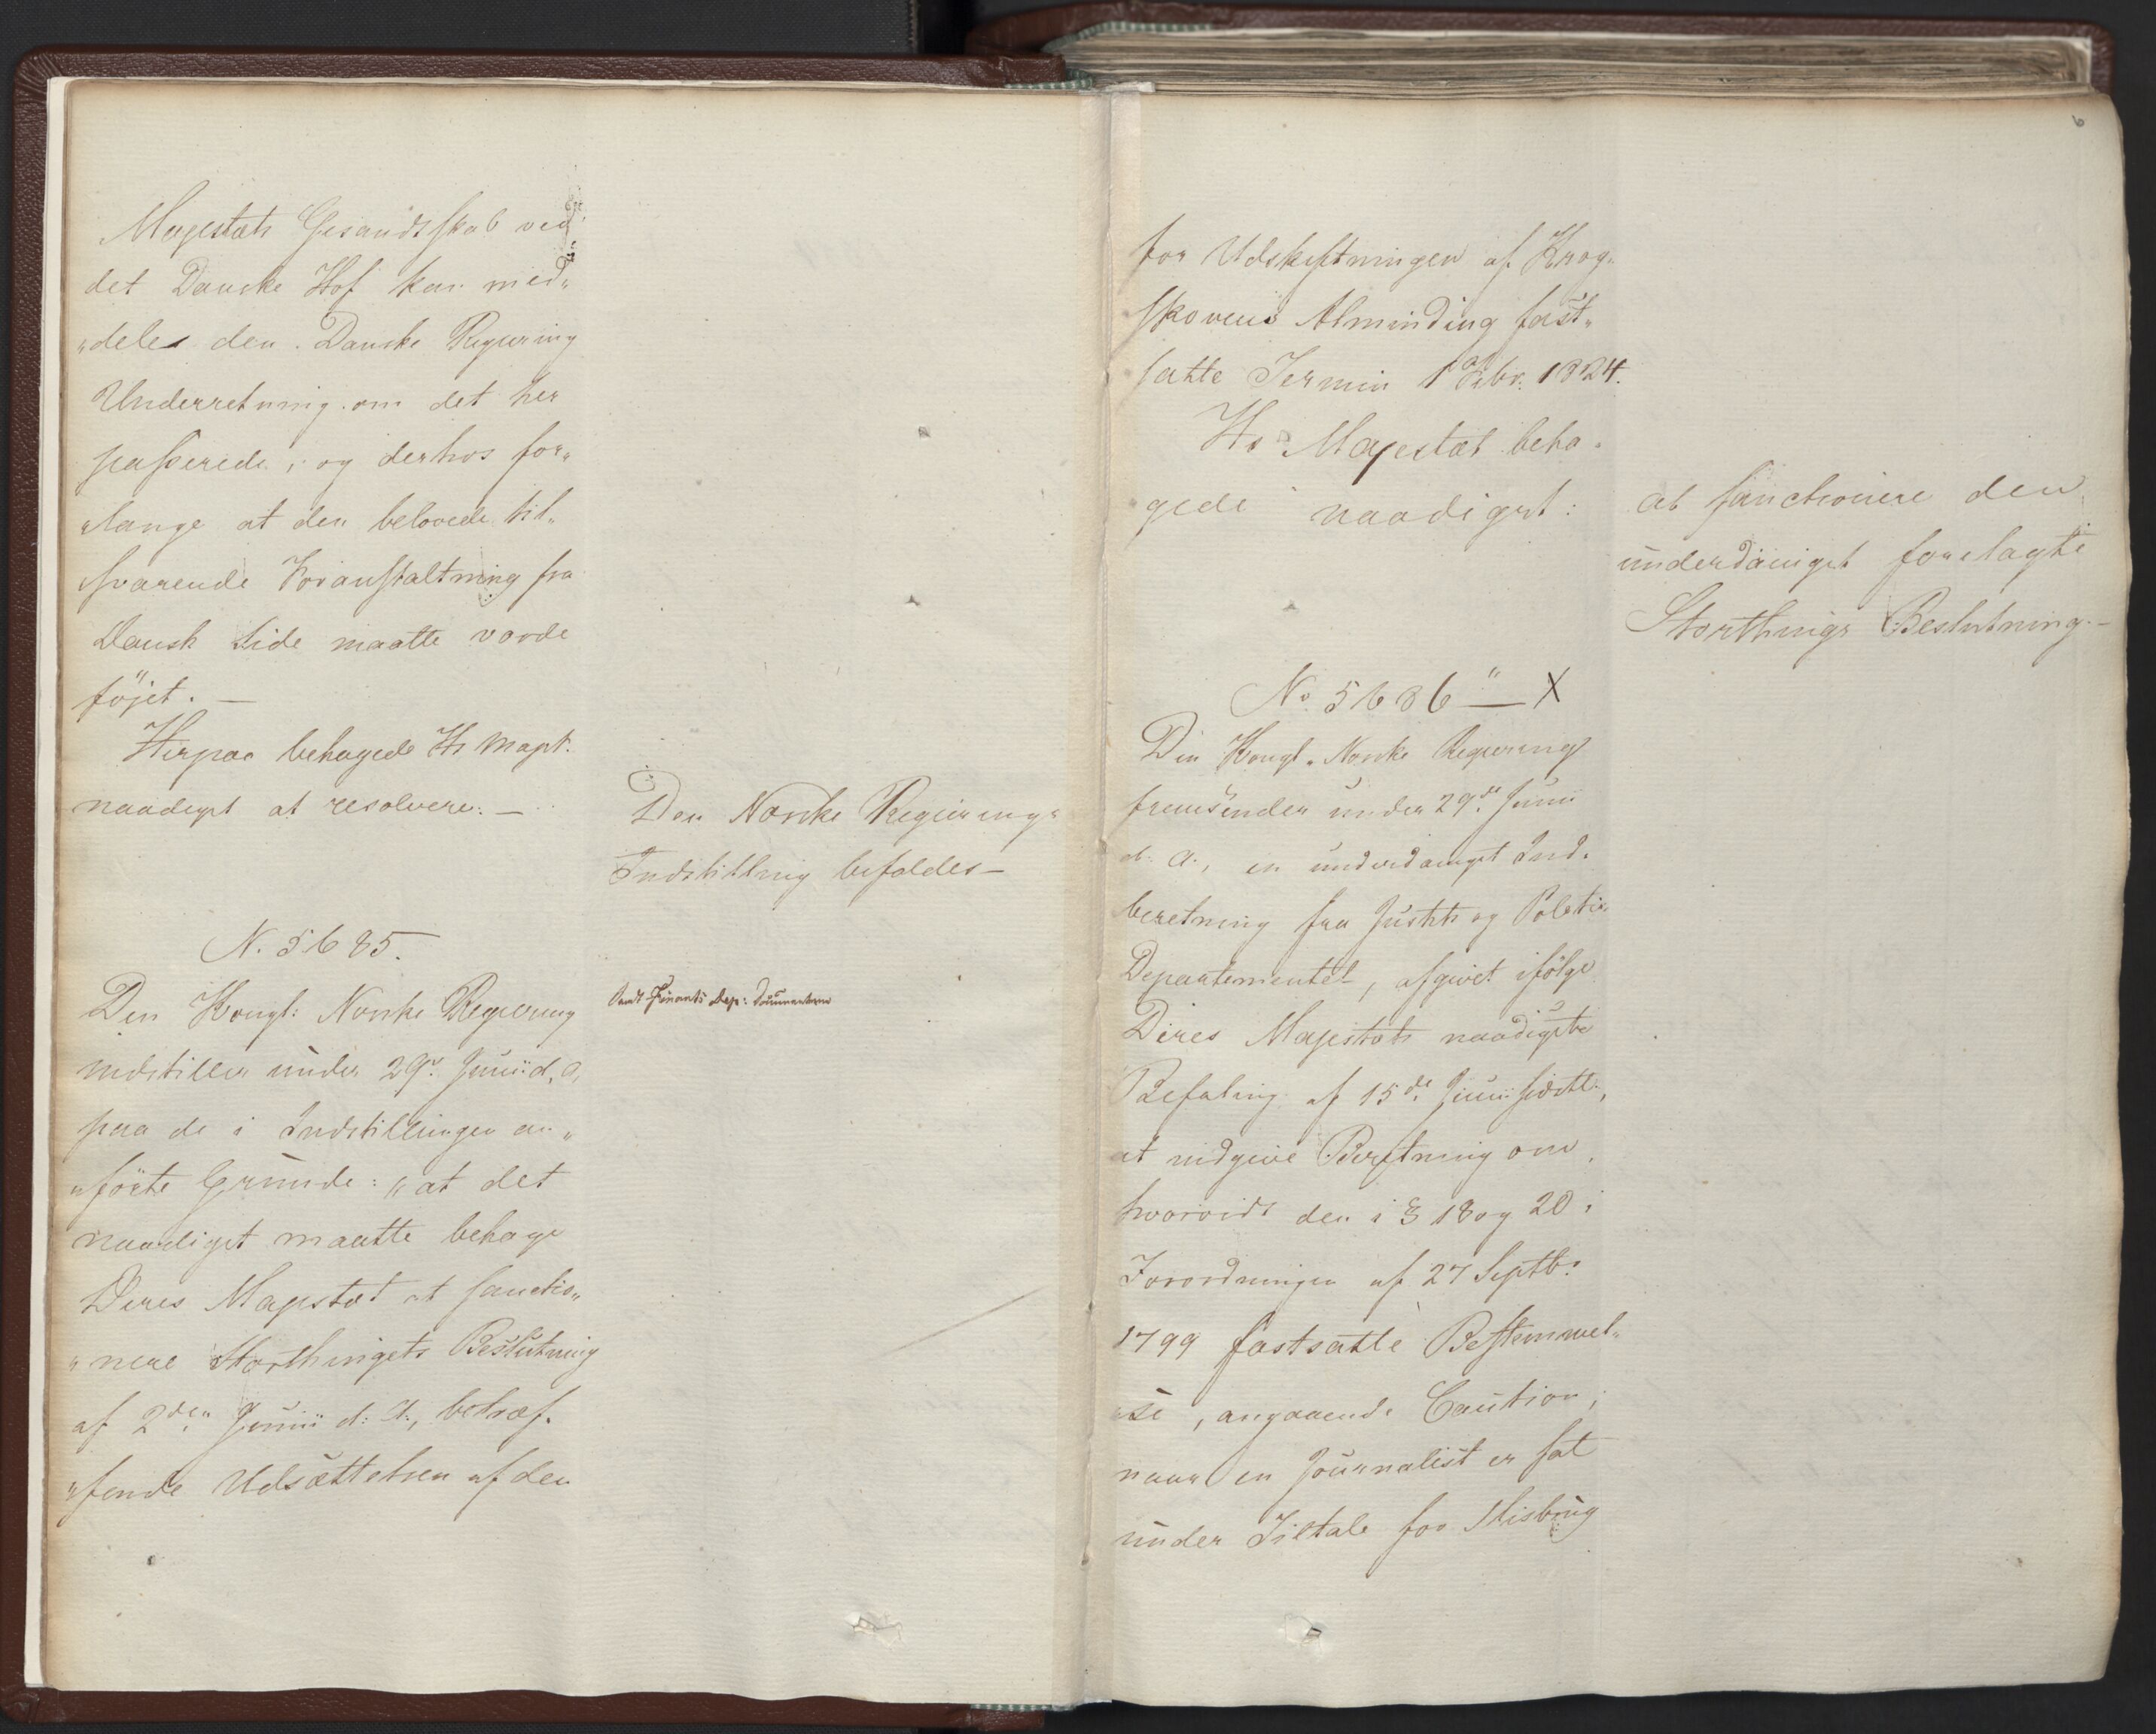 Majestæts Gesandtskab ved
det Danske Hof kan med„
„deles den Danske Regjering
Underretning om det her
passerede, og derhos for„
„lange at den belovede til„
svarende Foranstaltning fra
Dansk Side maatte vorde
föjet. —
Herpaa behagede Hs Majst.
naadigst at resolvere: —
Den Norske Regjerings
Indstilling bifaldes —
N. 5685.
Den Kongl: Norske Regjering
indstiller under 29de Junii d. A.
paa de i Indstillingen an„
„förte Grunde: „at det
naadigst maatte behage
Deres Majestæt at sanctio„
„nere Storthingets Beslutning
af 2den Junii d: A:, betræf„
„fende Udsættelsen af den
Finants Dep: Documenterne
6
for Udskiftningen af Krog„
skovens Alminding fast„
satte Termin 1 Octbr. 1824.
Hs Majestæt beha„
gede naadigst:
at sanctionere den
underdanigst forelagte
Storthings Beslutning. —
No. 5686 " — X
Den Kongl. Norske Regjering
fremsender under 29de Junii
d. A., en underdanigst Ind„
beretning fra Justits og Politie
Departementet, afgivet ifölge
Deres Majestæts naadigste
Befaling af 15de Junii sidstl.,
at indgive Beretning om,
hvorvidt den i § 18 og 20 i
Forordningen af 27 Septbr
1799 fastsatte Bestemmel„
„se, angaaende Caution,
naar en Journalist er sat
under Tiltale for Misbrug